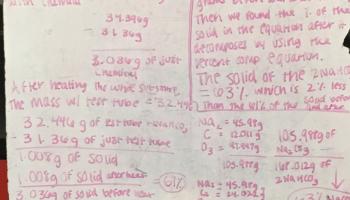 with chemical
34.396g
- 31.36g
3.036g of just
chemical
After heating the white substance,
The mass w/ test tube = 32.446
32.446g of
- 31.36g of just test tube
1.008g of solid
1.008g of solid
3.036g of solid before heat
= 61%
Then we found the % of the
solid in the equation after it
decomposes by using the
percent comp equation.
The solid of the 2NaHCO
= 63%, which is 2% less
Than the 61% of the solid before
Na2 = 45.98g
C = 12.011g
O3 = 47.997g
105.988g
105.988g of
Na2CO3
168.012g of
2NaHCO3
Na2 = 45.98g
C2 = 24.022g